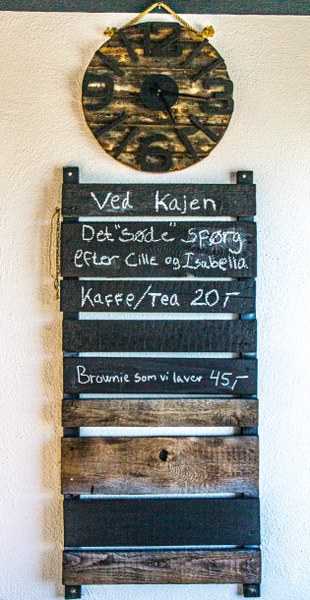 12
11
1
9
3
6
5
Ved Kajen
Det "Søde" spørg
efter Cille og Isabella
Kaffe/Tea 20,-
Brownie som vi laver 45,-